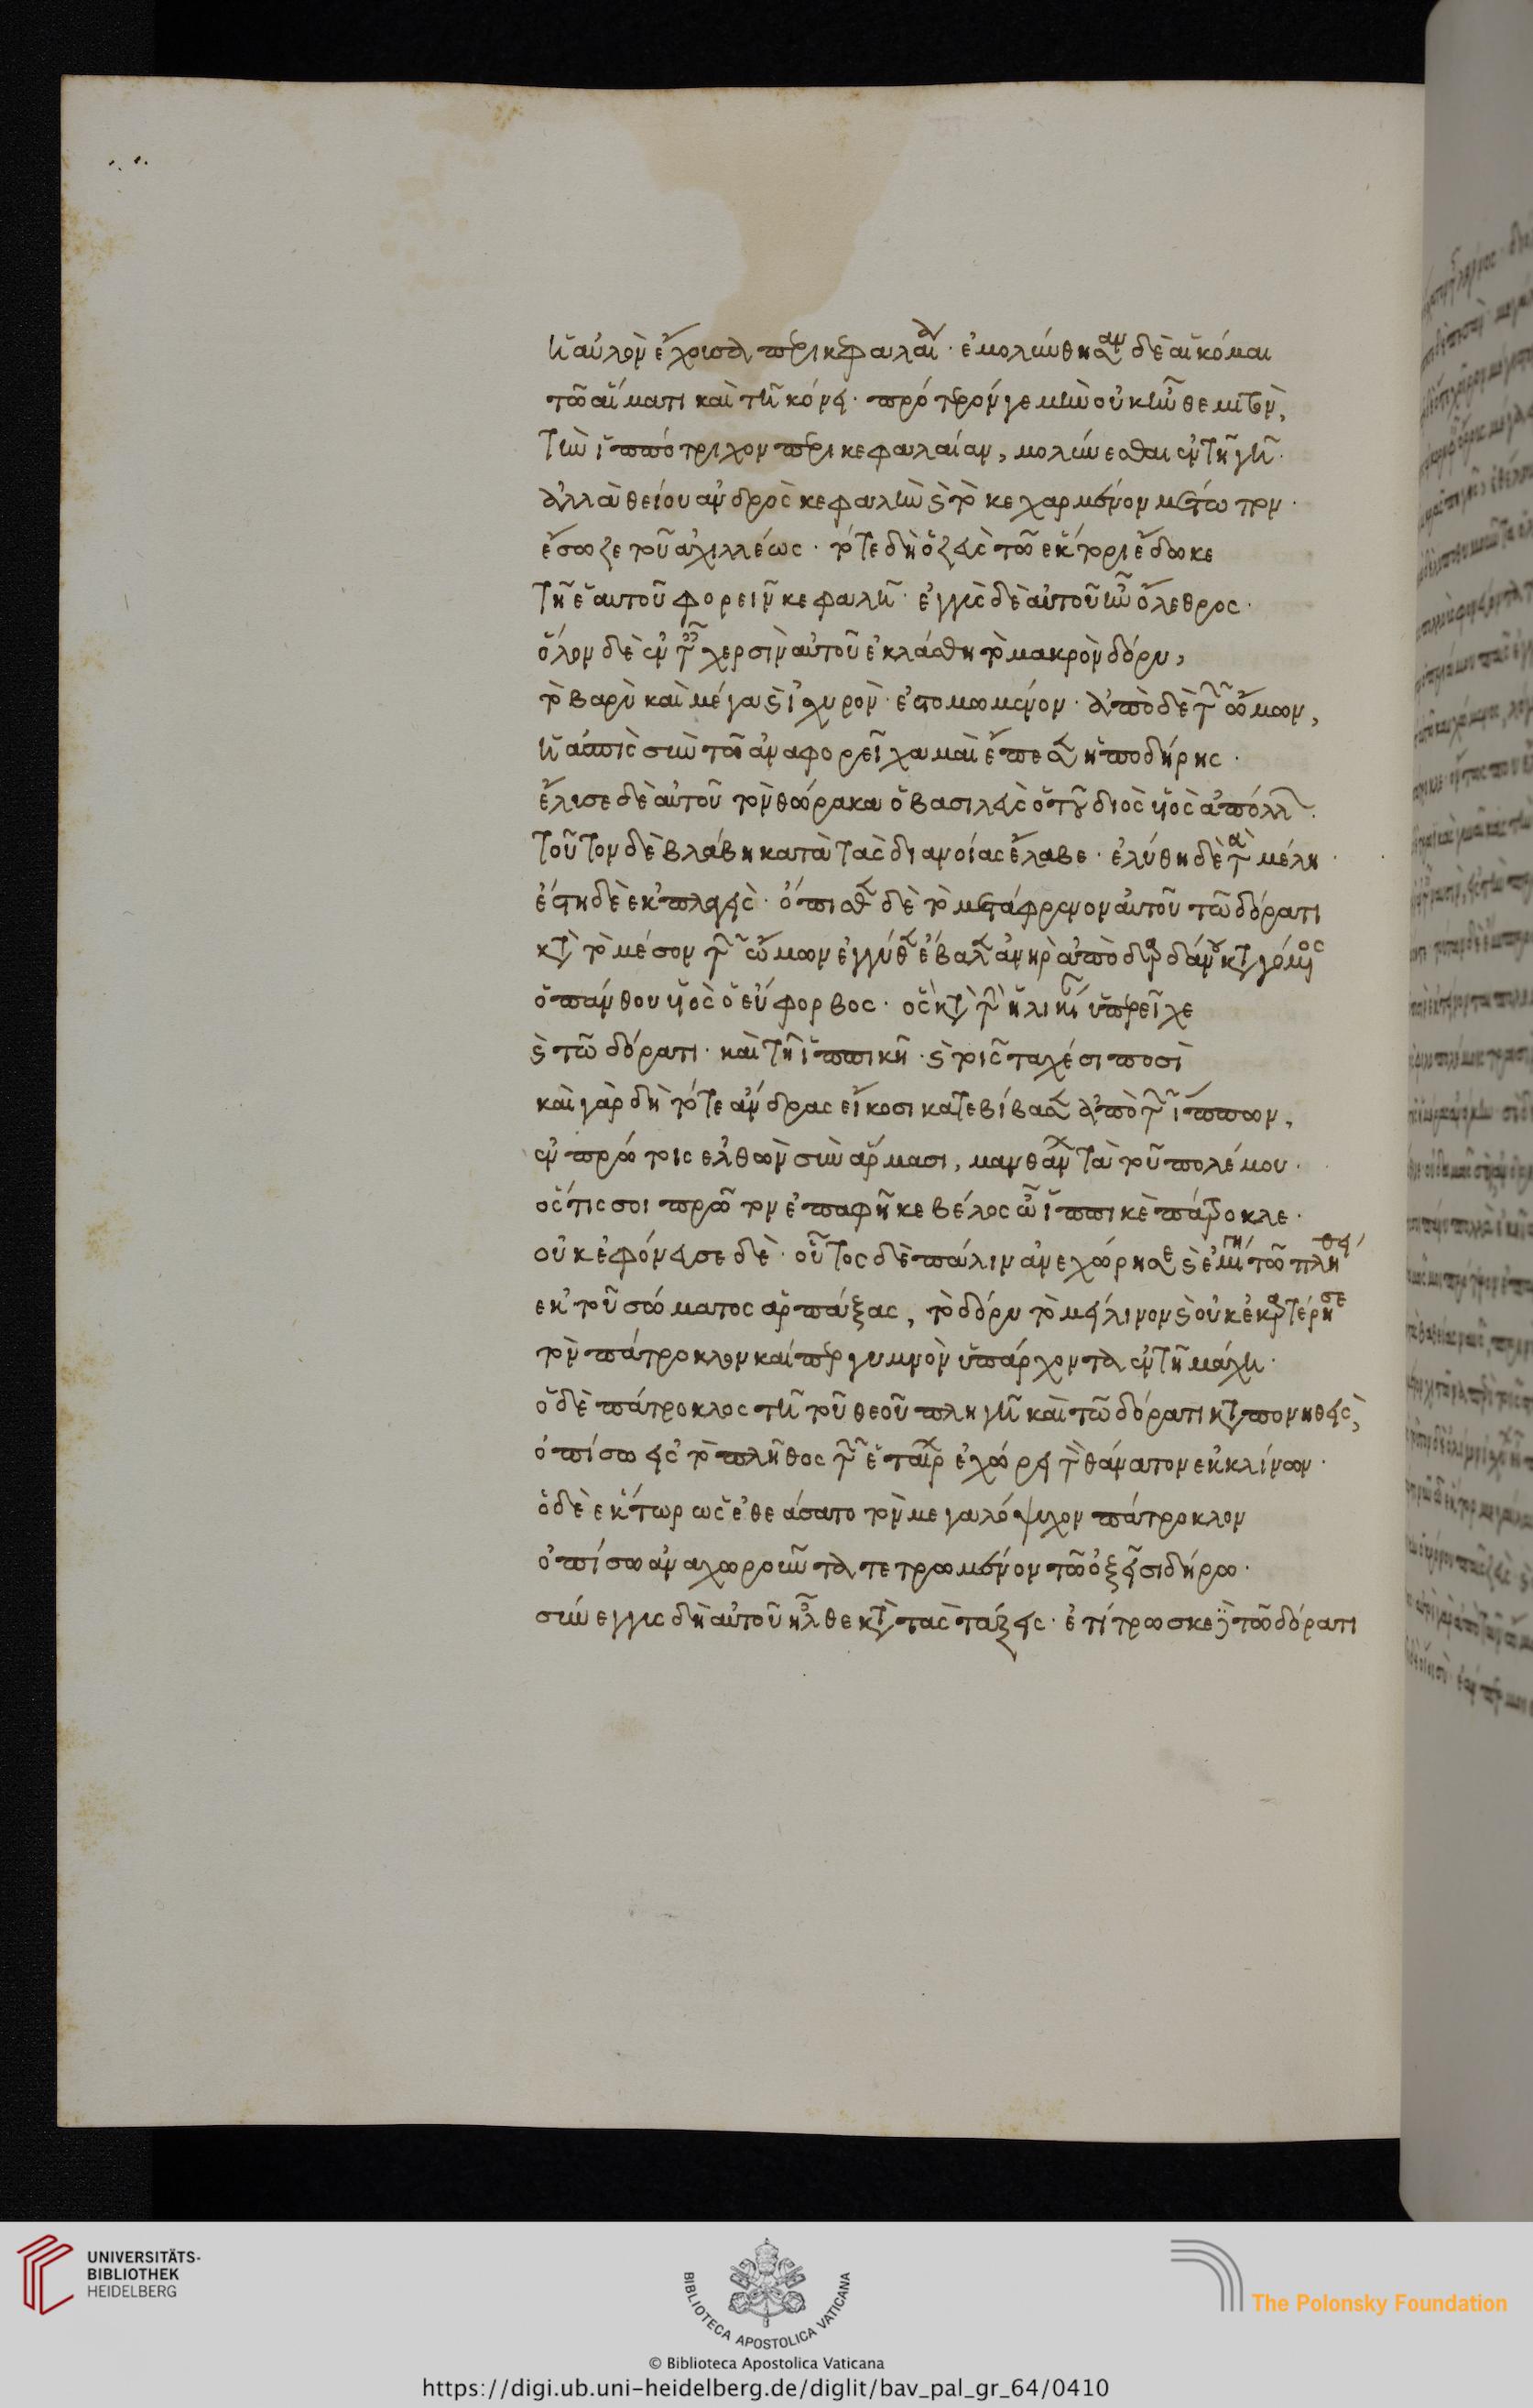 ἡ αὐλὸν ἔχουσα περικεφαλαία· ἐμολύνθησαν δὲ αἱ κόμαι
τῶ αἵματι καὶ τῆ κόνει· πρότερόν γε μὴν οὐκ ἦν θεμιτὸν,
τὴν ἱππότριχον περικεφαλαίαν, μολύνεσθαι ἐν τῆ γῆ·
ἀλλὰ θείου ἀνδρὸς κεφαλὴν καὶ τὸ κεχαρμένον μέτωπον·
ἔσωζε τοῦ ἀχιλλέως· τότε δὴ ὁ ζεὺς τῶ ἕκτορι ἔδωκε
τῆ ἑαυτοῦ φορεῖν κεφαλῆ· ἐγγὺς δὲ αὐτοῦ ἦν ὄλεθρος·
ὅλον δὲ ἐν ταῖς χερσὶν αὐτοῦ ἐκλάσθη τὸ μακρὸν δόρυ,
τὸ βαρὺ καὶ μέγα καὶ ἰσχυρὸν· ἐστομωμένον· ἀπὸ δὲ τῶν ὤμων,
ἡ ἀσπὶς σὺν τῶ ἀναφορεῖ χαμαὶ ἔπεσεν ἡ ποδήρης·
ἔλυσε δὲ αὐτοῦ τὸν θώρακα ὁ βασιλεὺς ὁ τοῦ διὸς υἱὸς ἀπόλλων·
τοῦτον δὲ βλάβη κατὰ τὰς διανοίας ἔλαβε· ἐλύθη δὲ τὰ μέλη·
ἔστη δὲ ἐκπλαγεὶς· ὄπισθεν δὲ τὸ μετάφρενον αὐτοῦ τῶ δόρατι
κατὰ τὸ μέσον τῶν ὤμων ἐγγύθεν ἔβαλεν ἀνὴρ ἀπὸ δαρδάνου κατὰ γένος
ὁ πάνθου υἱὸς ὁ εὔφορβος· ὃς κατὰ τὴν ἡλικίαν ὑπερεῖχε
καὶ τῶ δόρατι· καὶ τῆ ἱππικῆ· καὶ τοῖς ταχέσι ποσὶ
καὶ γὰρ δὴ τότε ἄνδρας εἴκοσι κατεβίβασεν ἀπὸ τῶν ἵππων,
ἐν πρώτοις ἐλθὼν σὺν ἅρμασι, μανθάνων τὰ τοῦ πολέμου·
ὅς τις σοι πρῶτον ἐπαφῆκε βέλος ὦ ἱππικὲ πάτροκλε·
οὐκ ἐφόνευσε δὲ· οὗτος δὲ πάλιν ἀνεχώρησε καὶ ἐμίγη τῶ πλήθει
ἐκ τοῦ σώματος ἁρπάξας, τὸ δόρυ τὸ μείλινον καὶ οὐκ ἐκαρτέρησε
τὸν πάτροκλον καίπερ γυμνὸν ὑπάρχοντα ἐν τῆ μάχη·
ὁ δὲ πάτροκλος τῆ τοῦ θεοῦ πληγῆ καὶ τῶ δόρατι καταπονηθεὶς,
ὀπίσω εἰς τὸ πλῆθος τῶν ἑταίρων ἐχώρει τὸν θάνατον ἐκκλίνων·
ὁ δὲ ἕκτωρ ὡς ἐθεάσατο τὸν μεγαλόψυχον πάτροκλον
ὀπίσω ἀναχωροῦντα τετρωμένον τῶ ὀξεῖ σιδήρω·
σύνεγγυς δὴ αὐτοῦ ἦλθε κατὰ τὰς τάξεις· ἐτίτρωσκε δὲ τῶ δόρατι
UNIVERSITÄTS-
BIBLIOTHEK
HEIDELBERG
BIBLIOTECA APOSTOLICA VATICANA
The Polonsky Foundation
© Biblioteca Apostolica Vaticana
https://digi.ub.uni-heidelberg.de/diglit/bav_pal_gr_64/0410